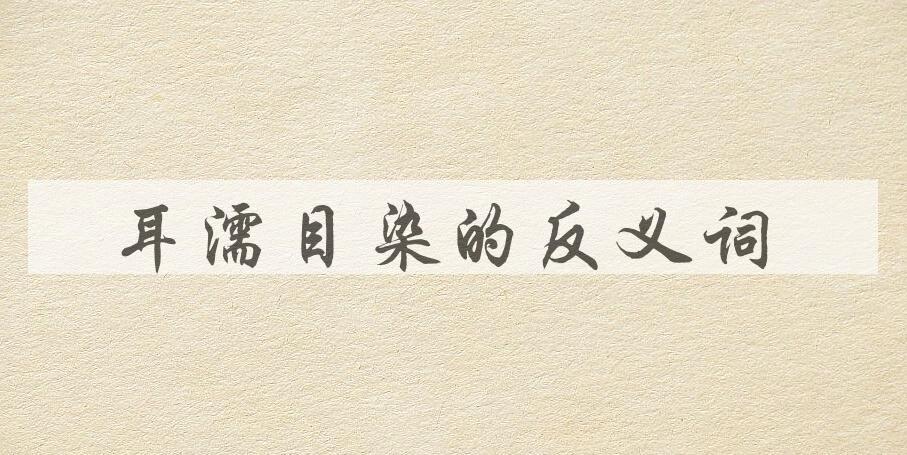 耳濡目染的反义词